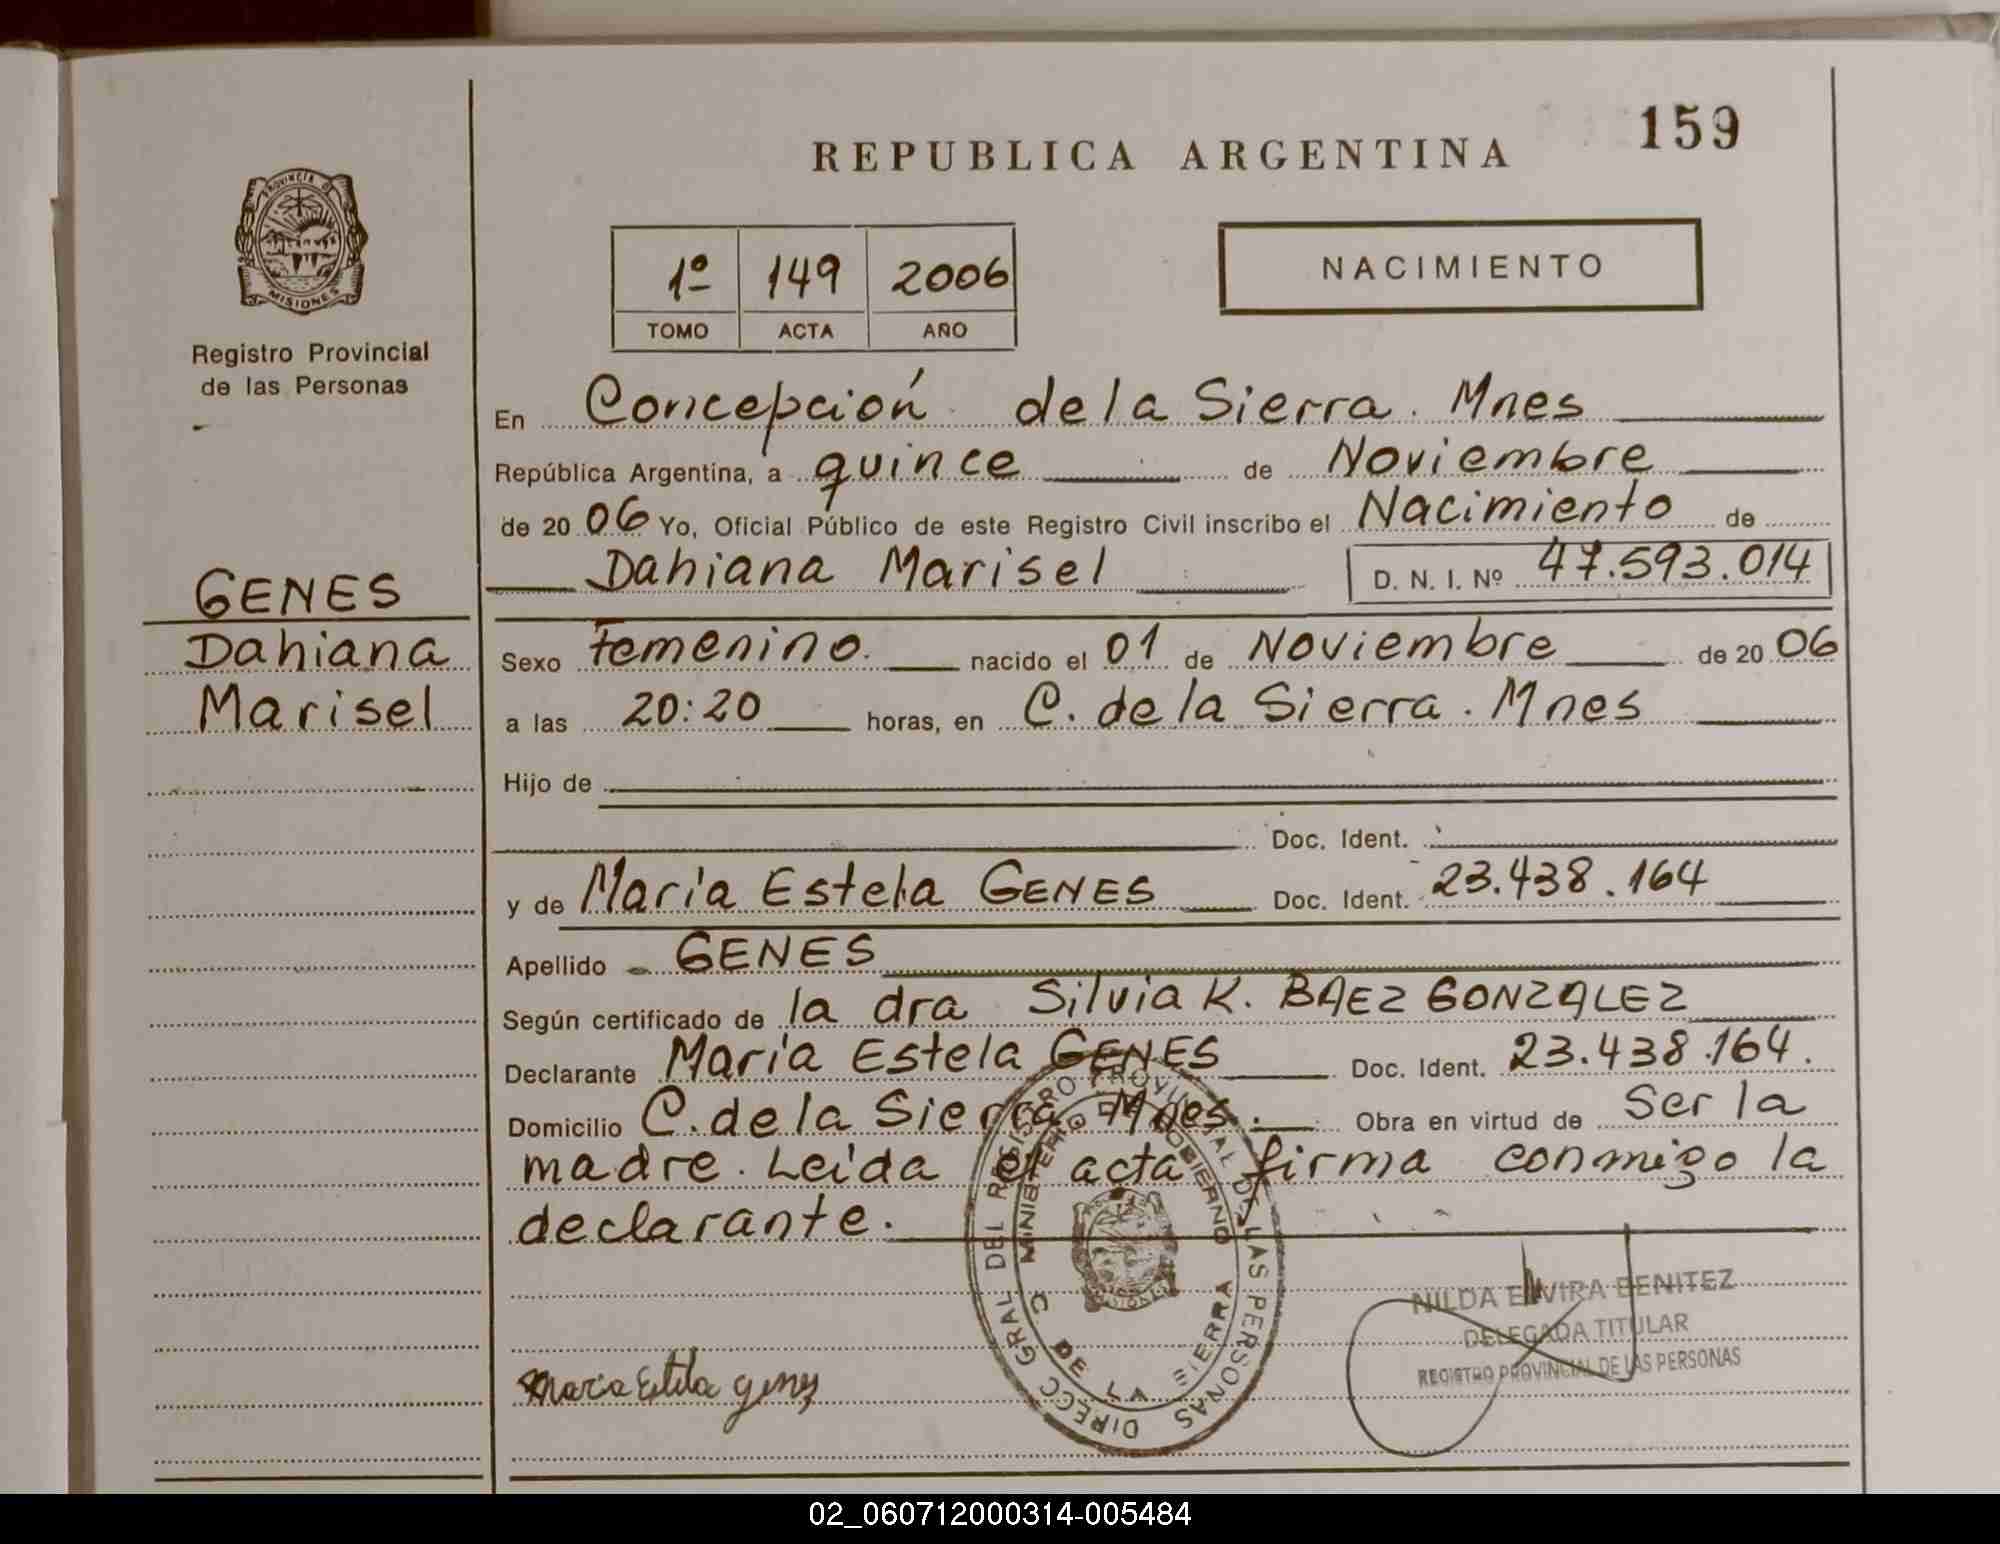 REPUBLICA ARGENTINA
159
PROVINCIA D
MISIONES
Registro Provincial
de las Personas
1º 149 2006
TOMO ACTA AÑO
NACIMIENTO
En Concepción de la Sierra. Mnes
República Argentina, a quince de Noviembre
de 20 06 Yo, Oficial Público de este Registro Civil inscribo el Nacimiento de
Dahiana Marisel D. N. I. Nº 47.593.014
GENES
Dahiana
Marisel
Sexo Femenino. nacido el 01 de Noviembre de 20 06
a las 20:20 horas, en C. de la Sierra. Mnes
Hijo de
Doc. Ident.
y de María Estela GENES Doc. Ident. 23.438.164
Apellido GENES
Según certificado de la dra Silvia K. BAEZ GONZALEZ
Declarante María Estela GENES Doc. Ident. 23.438.164.
Domicilio C. de la Sierra Mnes. Obra en virtud de Ser la
madre. Leída el acta firma conmigo la
declarante.
DIRECC GRAL DEL REGISTRO PROVINCIAL DE LAS PERSONAS
MINISTERIO DE GOBIERNO
C DE LA SIERRA
MISIONES
Maria Estela genes
NILDA ELVIRA BENITEZ
DELEGADA TITULAR
REGISTRO PROVINCIAL DE LAS PERSONAS
02_060712000314-005484